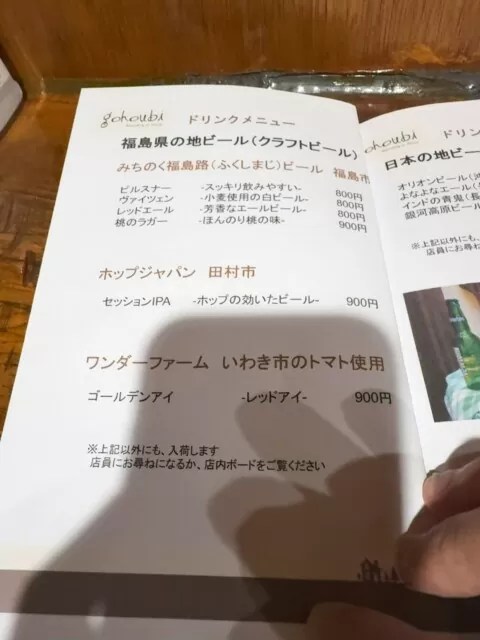 gohoubi
ドリンクメニュー
福島県の地ビール(クラフトビール)
みちのく福島路(ふくしまじ)ビール 福島市
ピルスナー -スッキリ飲みやすい- 800円
ヴァイツェン -小麦使用の白ビール- 800円
レッドエール -芳香なエールビール- 800円
桃のラガー -ほんのり桃の味- 900円
ホップジャパン 田村市
セッションIPA -ホップの効いたビール- 900円
ワンダーファーム いわき市のトマト使用
ゴールデンアイ -レッドアイ- 900円
※上記以外にも、入荷します
店員にお尋ねになるか、店内ボードをご覧ください
ohoubi ドリン
日本の地ビー
オリオンビール(沖
よなよなエール(
インドの青鬼(長
銀河高原ビール
※上記以外にも、
店員にお尋ね